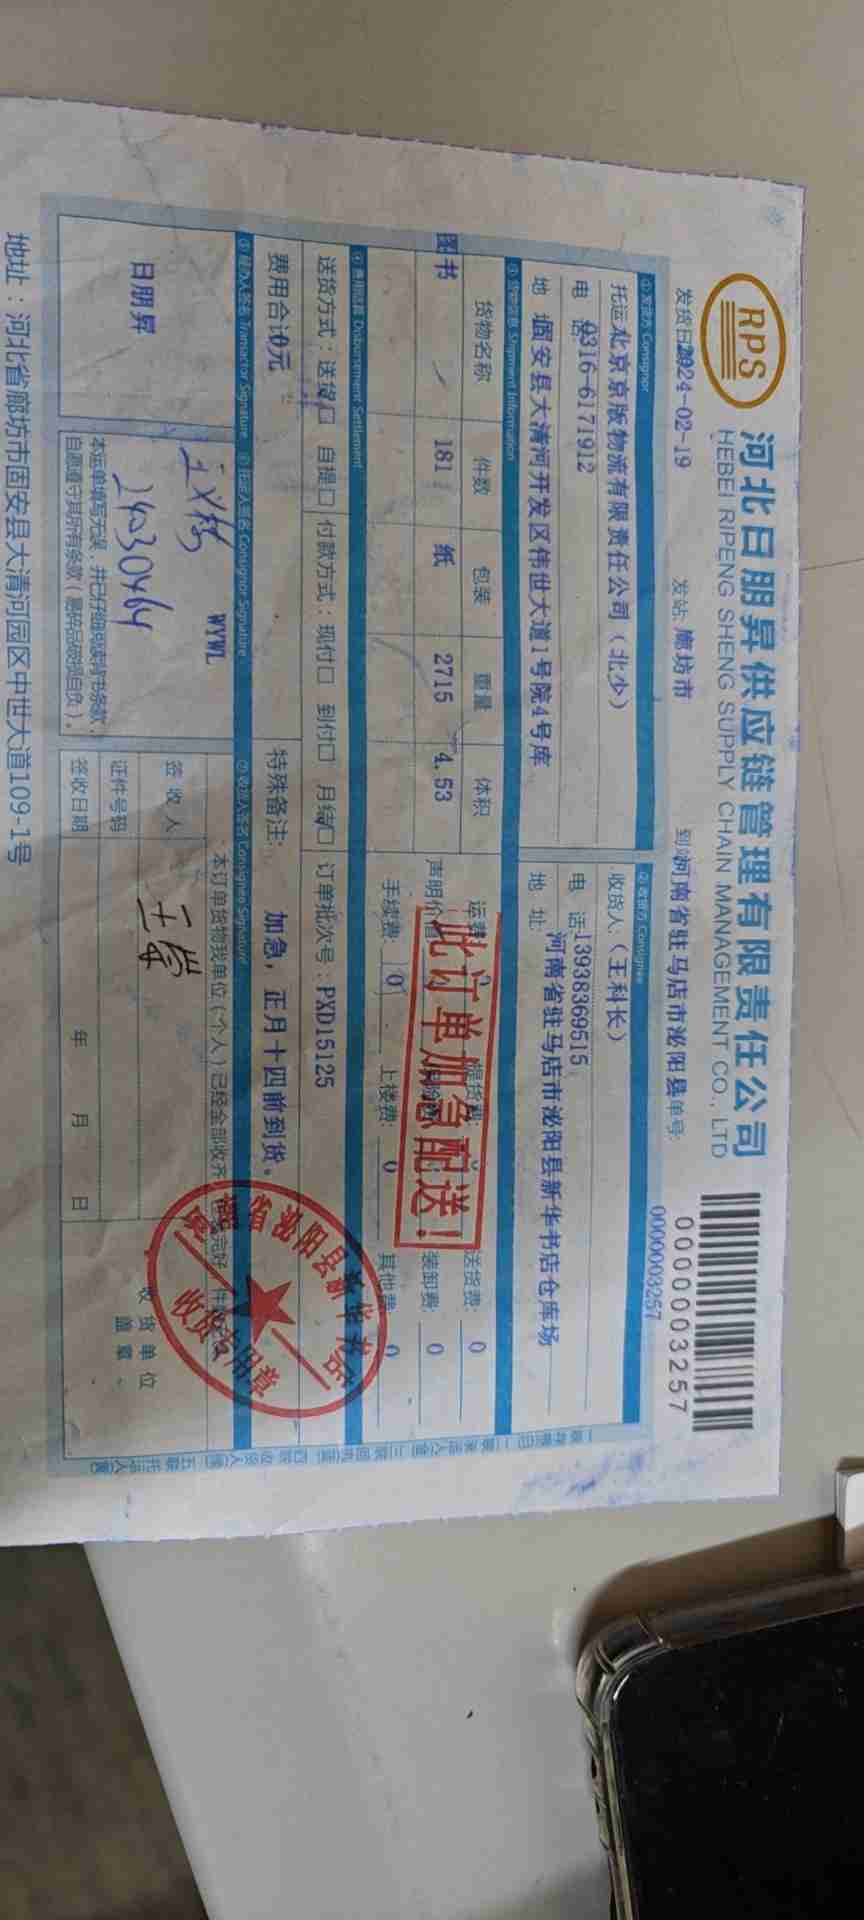 RPS
河北日朋昇供应链管理有限责任公司
HEBEI RIPENG SHENG SUPPLY CHAIN MANAGEMENT CO., LTD
0000003257
0000003257
发货日期2024-02-19 发站:廊坊市 到站河南省驻马店市泌阳县单号:
①发货方 Consignor ②收货方 Consignee
托运 北京京版物流有限责任公司（北少） 收货人:（王科长）
电话0316-6171912 电话13938369515
地 固安县大清河开发区伟世大道1号院4号库 地址:河南省驻马店市泌阳县新华书店仓库场
③货物信息 Shipment Information
货物名称 件数 包装 重量 体积 运费: 提货费: 送货费: 0
图书 181 纸 2715 4.53 声明价值 装卸费: 0
手续费: 0 上楼费: 0 其他费: 0
此订单加急配送!
④费用结算 Disbursement Settlement
送货方式:送货口 自提口 付款方式:现付口 到付口 月结口 订单批次号:PXD15125
费用合计0元 特殊备注: 加急, 正月十四前到货。
⑤经办人签名 Transactor Signature ⑥托运人签名 Consignor Signature ⑦收货人签名 Consignee Signature
日朋昇
WYWL
2430464
本运单填写无误,并已仔细阅读背书条款,
自愿遵守其所有条款(易碎品破损自负)。
本订单货物我单位(个人)已经全部收齐
签收人
证件号码
签收日期 年 月 日
收货单位
盖章
泌阳县新华书店
收货专用章
地址:河北省廊坊市固安县大清河园区中世大道109-1号